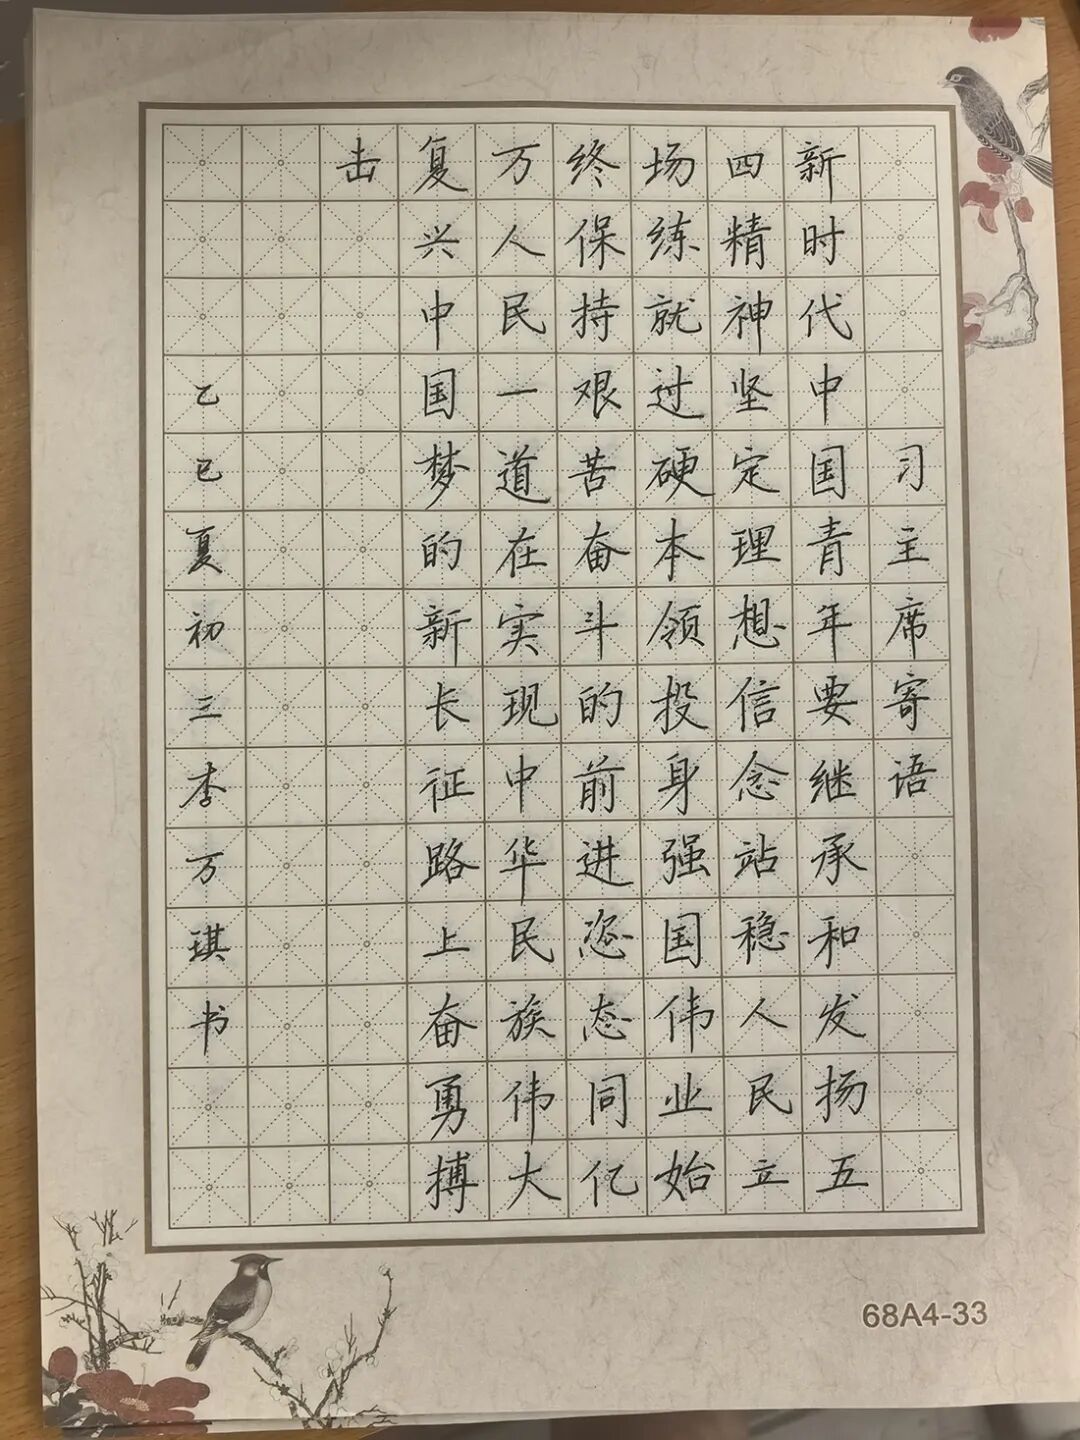 习主席寄语
新时代中国青年要继承和发扬五
四精神坚定理想信念站稳人民立
场练就过硬本领投身强国伟业始
终保持艰苦奋斗的前进姿态同亿
万人民一道在实现中华民族伟大
复兴中国梦的新长征路上奋勇搏
击
乙巳夏初三李万琪书
68A4-33